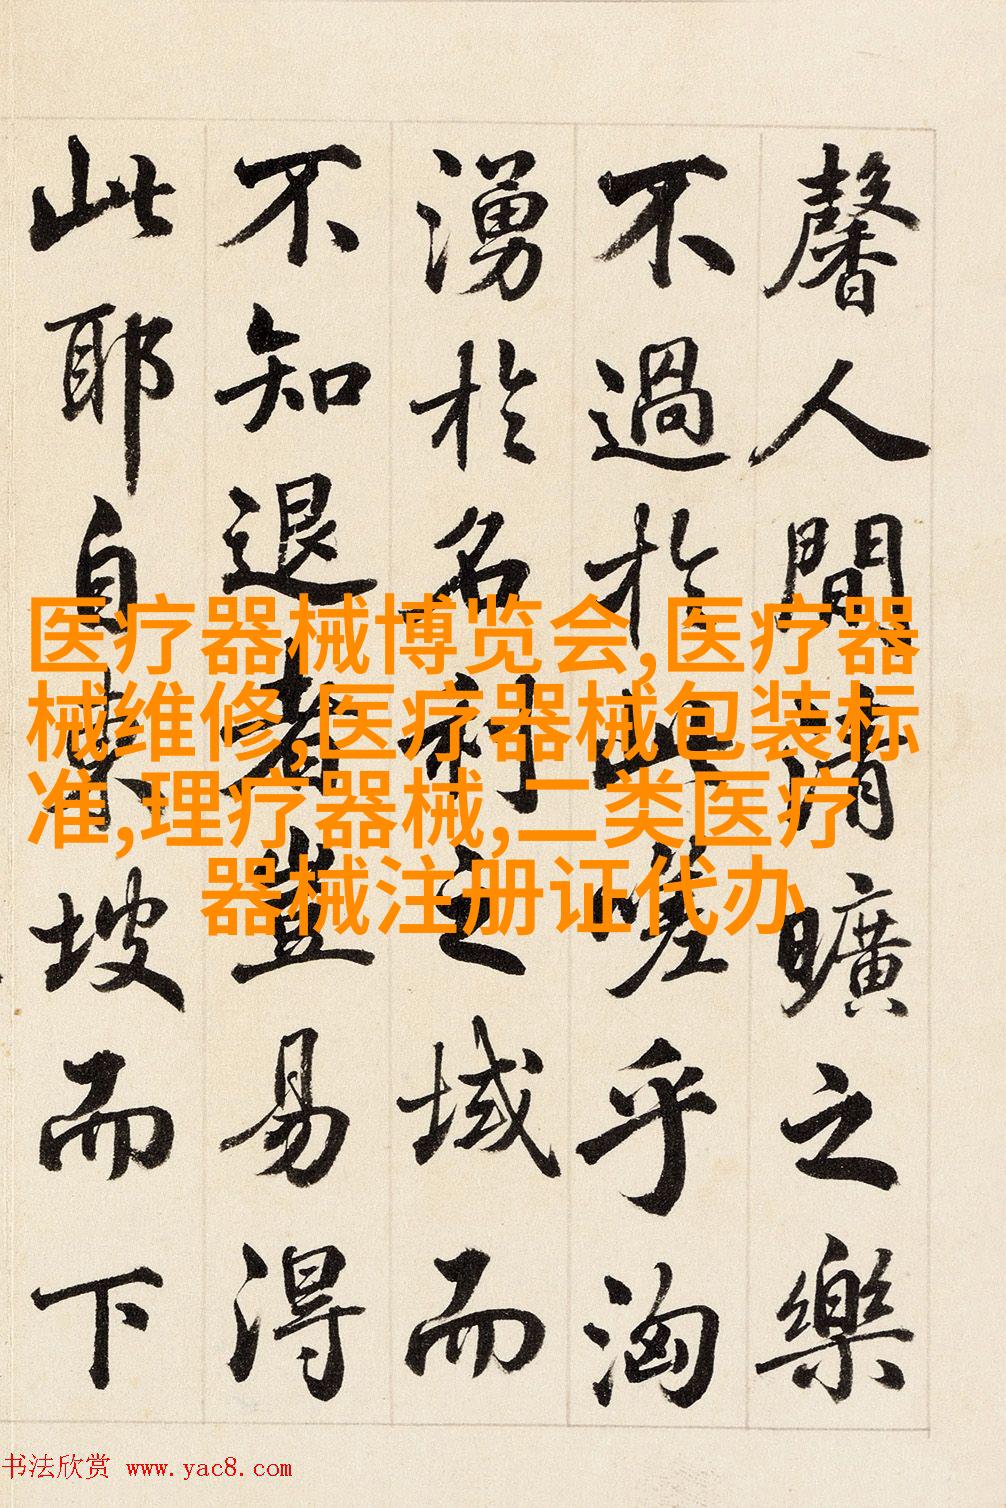 馨人間清曠之樂
不過於此嗟乎洶
湧於名利之域而
不知退者豈易得
此耶自東坡而下
医疗器械博览会,医疗器
械维修,医疗器械包装标
准,理疗器械,二类医疗
器械注册证代办
书法欣赏 www.yac8.com